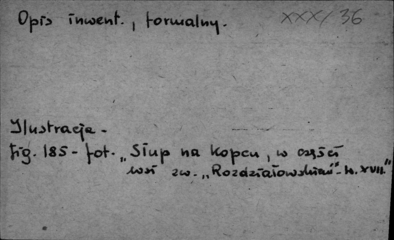 Opis inwent., formalny. XXX/36
Ilustracja -
fig. 185 - fot. „Słup na kopcu, w części
wsi zw. „Rozdziałowskań" - w. XVII."